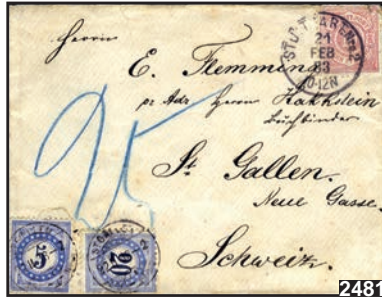 STUTTGART No 2
21
FEB
83
10-12N
Herrn
E. Flemming
pr Adr Herrn Kalkstein
Buchbinder
St Gallen.
Neue Gasse.
Schweiz.
25
5
20
2481